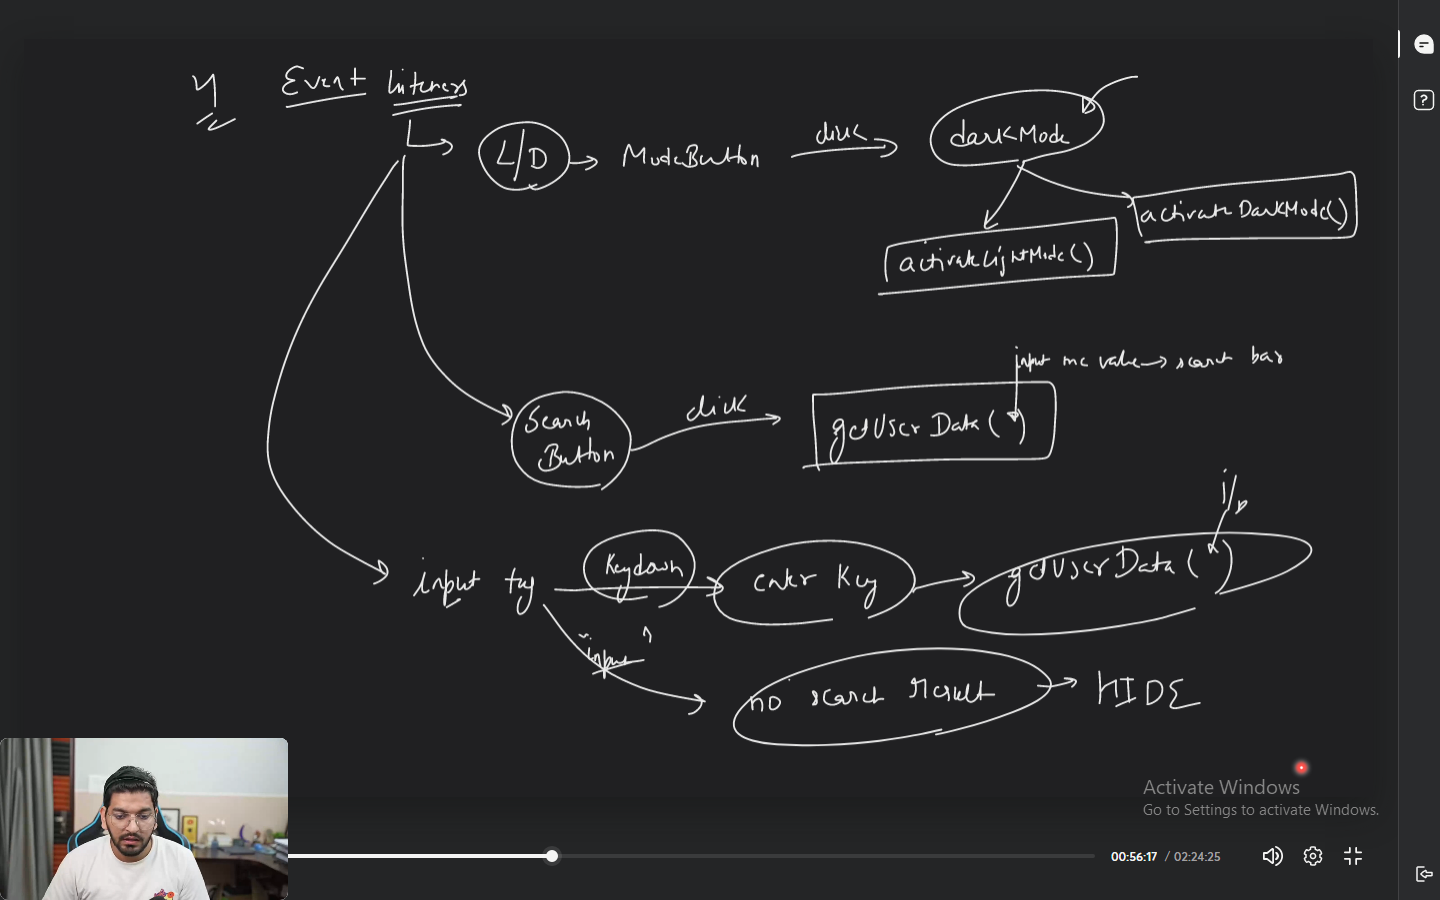 4) Event Listeners
L/D → ModeButton click → darkMode
activateDarkMode()
activateLightMode()
input me value → search bar
Search
Button
click → getUserData(")
i/p
input tag Keydown → enter Key → getUserData(")
"input"
no search result → HIDE
Activate Windows
Go to Settings to activate Windows.
00:56:17 / 02:24:25